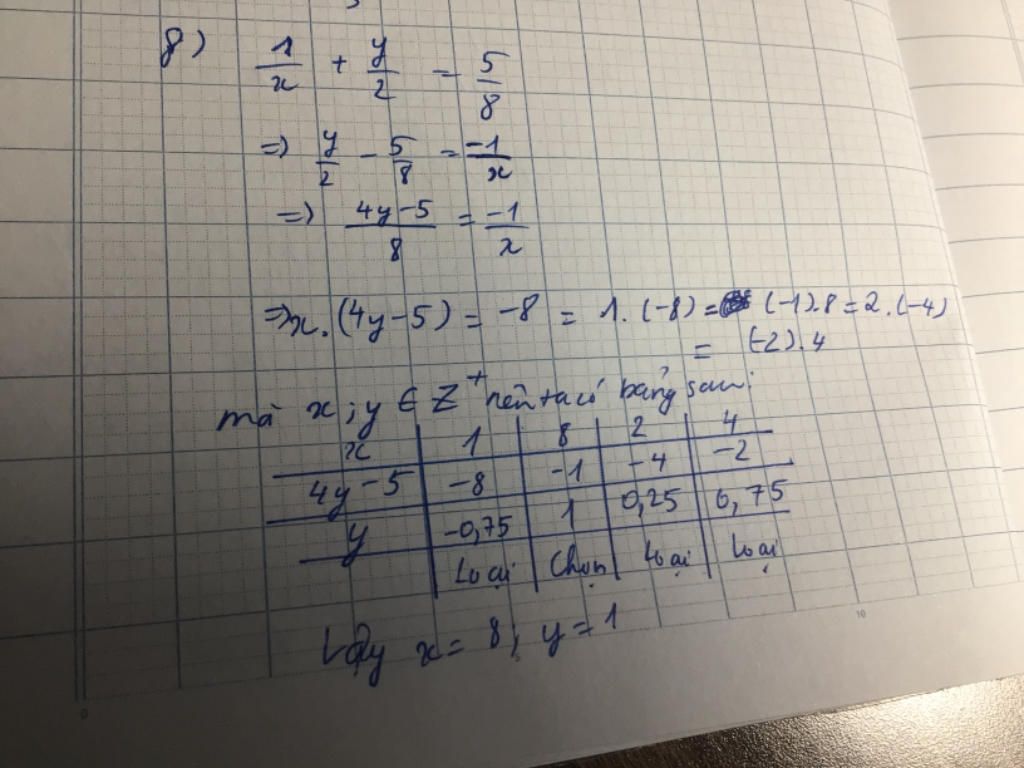 8) 1/x + y/2 = 5/8
=> y/2 - 5/8 = -1/x
=> 4y-5/8 = -1/x
=> x.(4y-5) = -8 = 1.(-8) = (-1).8 = 2.(-4)
= (-2).4
mà x;y ∈ Z⁺ nên ta có bảng sau:
x 1 8 2 4
4y-5 -8 -1 -4 -2
y -0,75 1 0,25 0,75
Loại Chọn Loại Loại
Vậy x = 8; y = 1
10
0